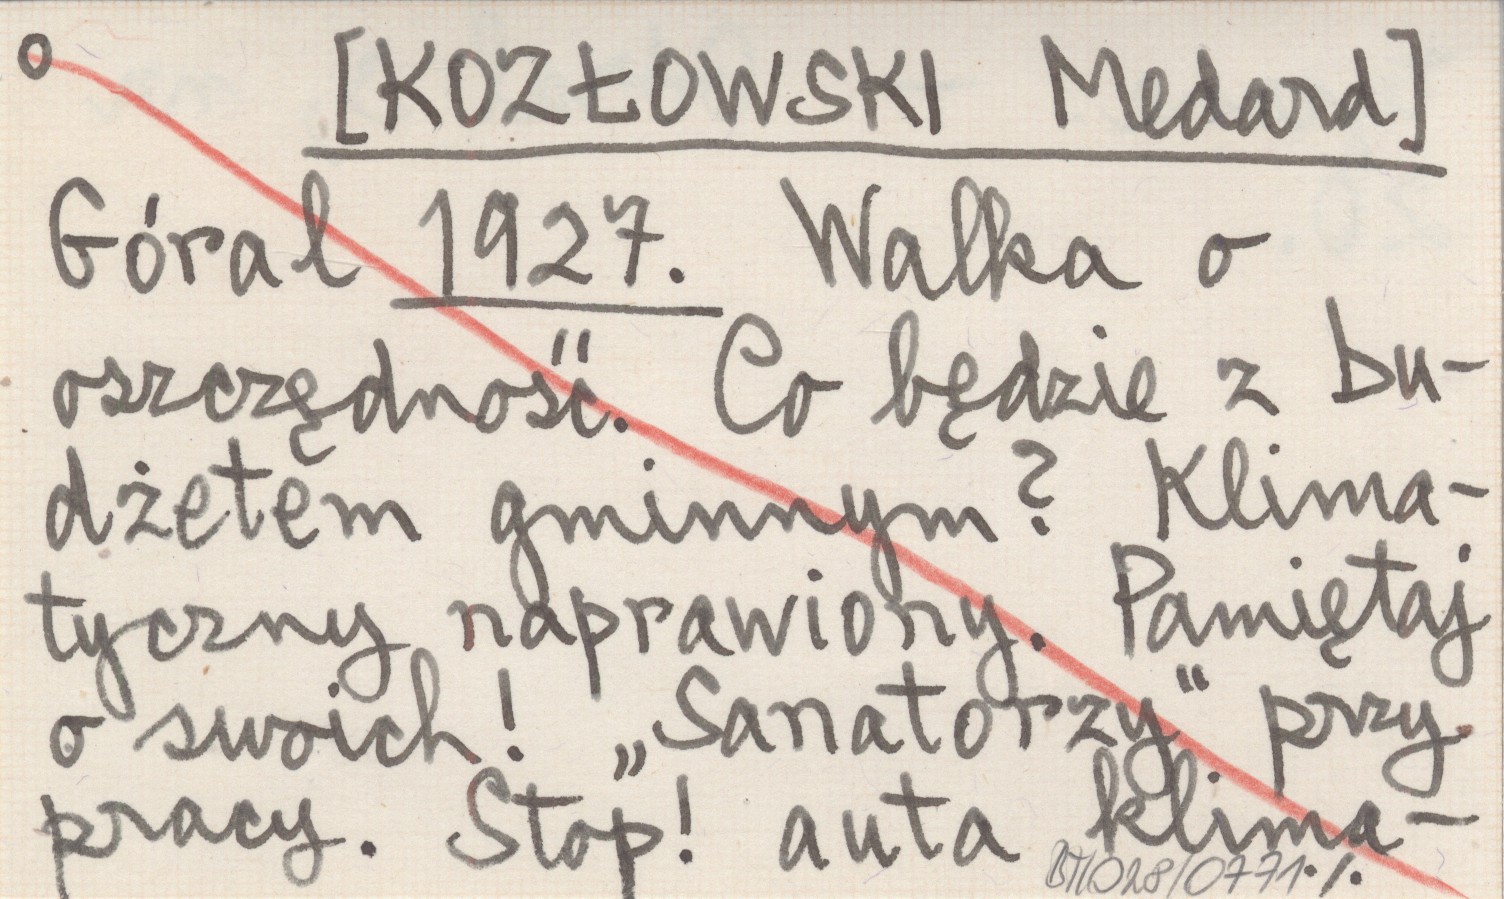 o [KOZŁOWSKI Medard]
Góral 1927. Walka o
oszczędność. Co będzie z bu-
dżetem gminnym? Klima-
tyczny naprawiony. Pamiętaj
o swoich! „Sanatorzy" przy
pracy. Stop! auta klima-
028/0771./.